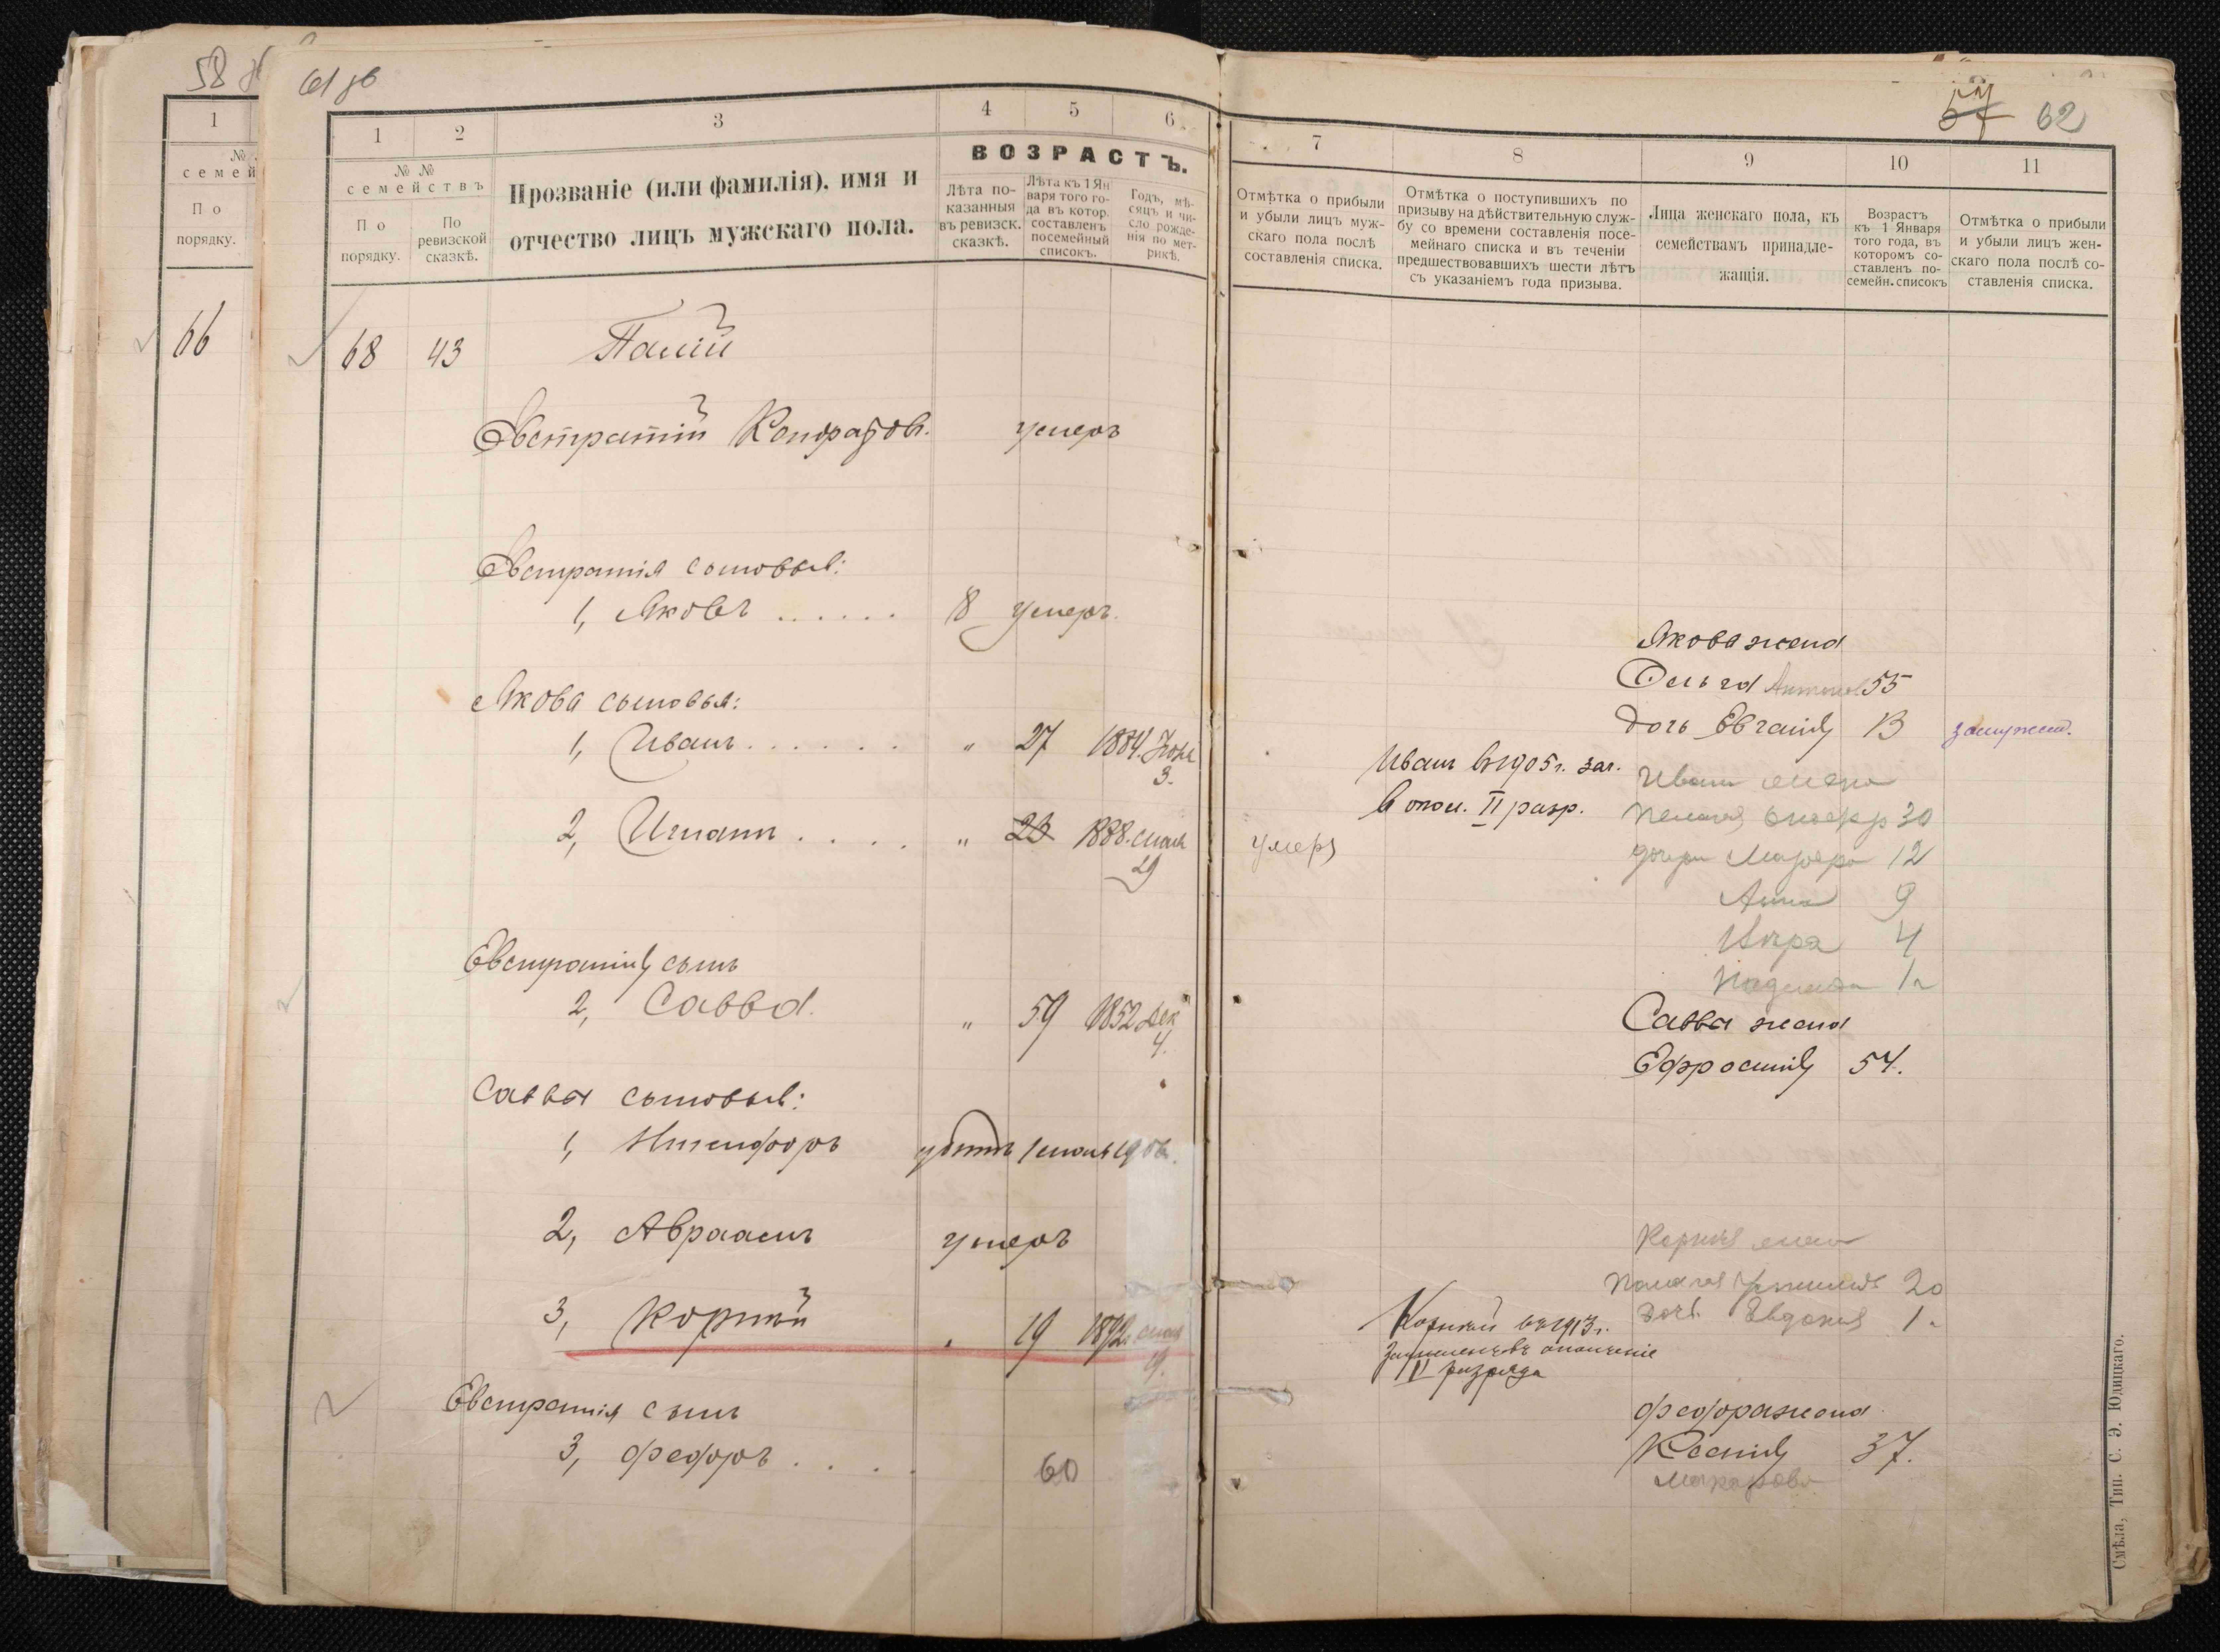 58
66
1
№
семей
По
порядку.
61 об
1
2
3
4
5
6
№ №
семействъ
По
порядку.
По
ревизской
сказкѣ.
Прозваніе (или фамилія), имя и
отчество лицъ мужскаго пола.
ВОЗРАСТЪ.
Лѣта по-
казанныя
въ ревизск.
сказкѣ.
Лѣта къ 1 Ян
варя того го-
да въ котор.
составленъ
посемейный
списокъ.
Годъ, мѣ-
сяцъ и чи-
сло рожде-
нія по мет-
рикѣ.
68 43 Палій
Евстратій Кондратов. умеръ
Евстратія сыновья:
1, Яковъ ...... 8 умеръ.
Якова сыновья:
1, Иванъ ...... " 27 1884. Іюня
3.
2, Игнатъ .... " 23 1888. мая
29
Евстратія сынъ
2, Савва. " 59 1852 дек
4.
Саввы сыновья:
1, Никифоръ убитъ 1906.
2, Авраамъ умеръ
3, Корній 19 1892. мая
9.
Евстратія сынъ
3, Федоръ .... 60
62
7
8
9
10
11
Отмѣтка о прибыли
и убыли лицъ муж-
скаго пола послѣ
составленія списка.
Отмѣтка о поступившихъ по
призыву на дѣйствительную служ-
бу со времени составленія посе-
мейнаго списка и въ теченіи
предшествовавшихъ шести лѣтъ
съ указаніемъ года призыва.
Лица женскаго пола, къ
семействамъ принадле-
жащія.
Возрастъ
къ 1 Января
того года, въ
которомъ со-
ставленъ по-
семейн. списокъ
Отмѣтка о прибыли
и убыли лицъ жен-
скаго пола послѣ со-
ставленія списка.
Якова жена
Ольга 55
дочь Евгенія 13 замужем.
Иванъ въ 1905 г. зач.
в опол. II разр.
Ивана жена
Пелагея 30
умеръ
дочери Марфа 12
Анна 9
4
1
Саввы жена
Ефросинія 54.
Корнія жена
Пелагея 20
дочь Евдокія 1
Корній въ 1913 г.
зачисленъ въ ополченіе
II разряда
Федора жена
Ксенія 37.
Макарова
Смѣла, Тип. С. Э. Юдицкаго.